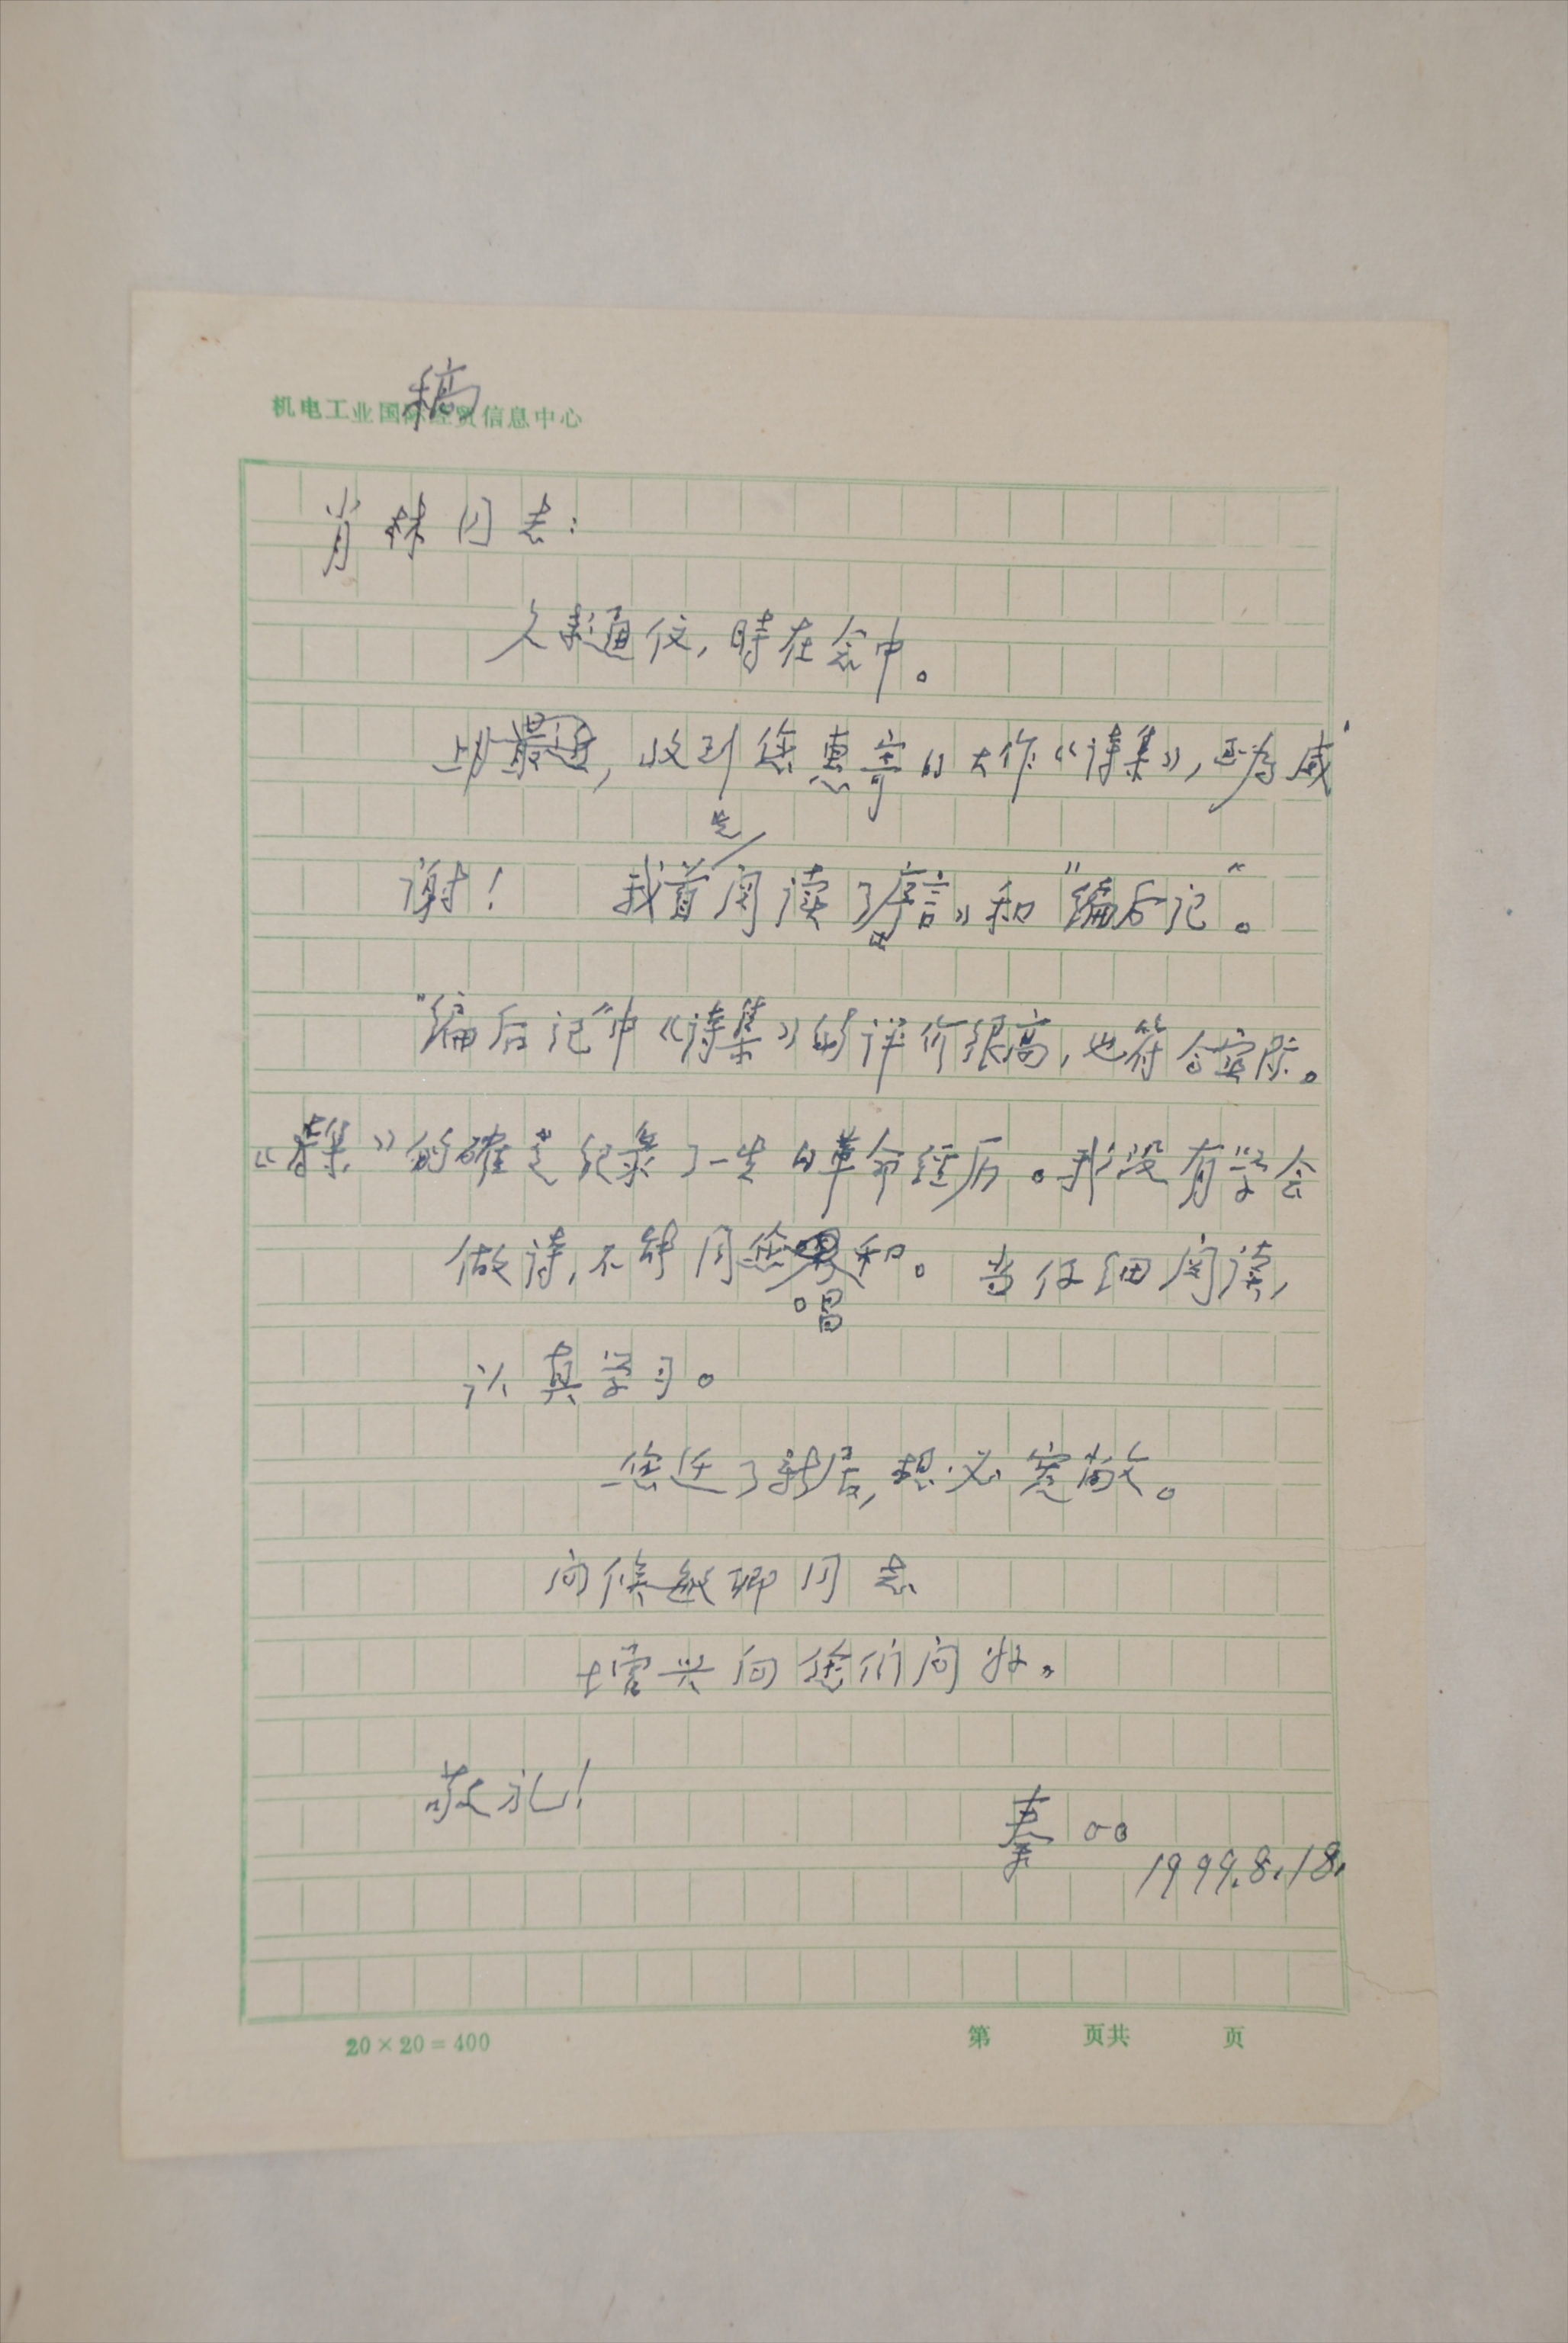 稿
机电工业国际经贸信息中心
肖林同志:
久未通信,時在念中。
收到您惠寄的大作《诗集》,甚为感
谢! 我首先阅读了序言》和"编后记"。
"编后记"中《诗集》的评价很高,也符合实际。
《诗集》的確是纪录了一生的革命经历。我没有学会
做诗,不能同您唱和。当仔细阅读,
认真学习。
您迁了新居,想必宽敞。
问候敏卿同志
增兴向您们问好。
敬礼!
秦
1999.8.18.
20×20=400 第 页共 页